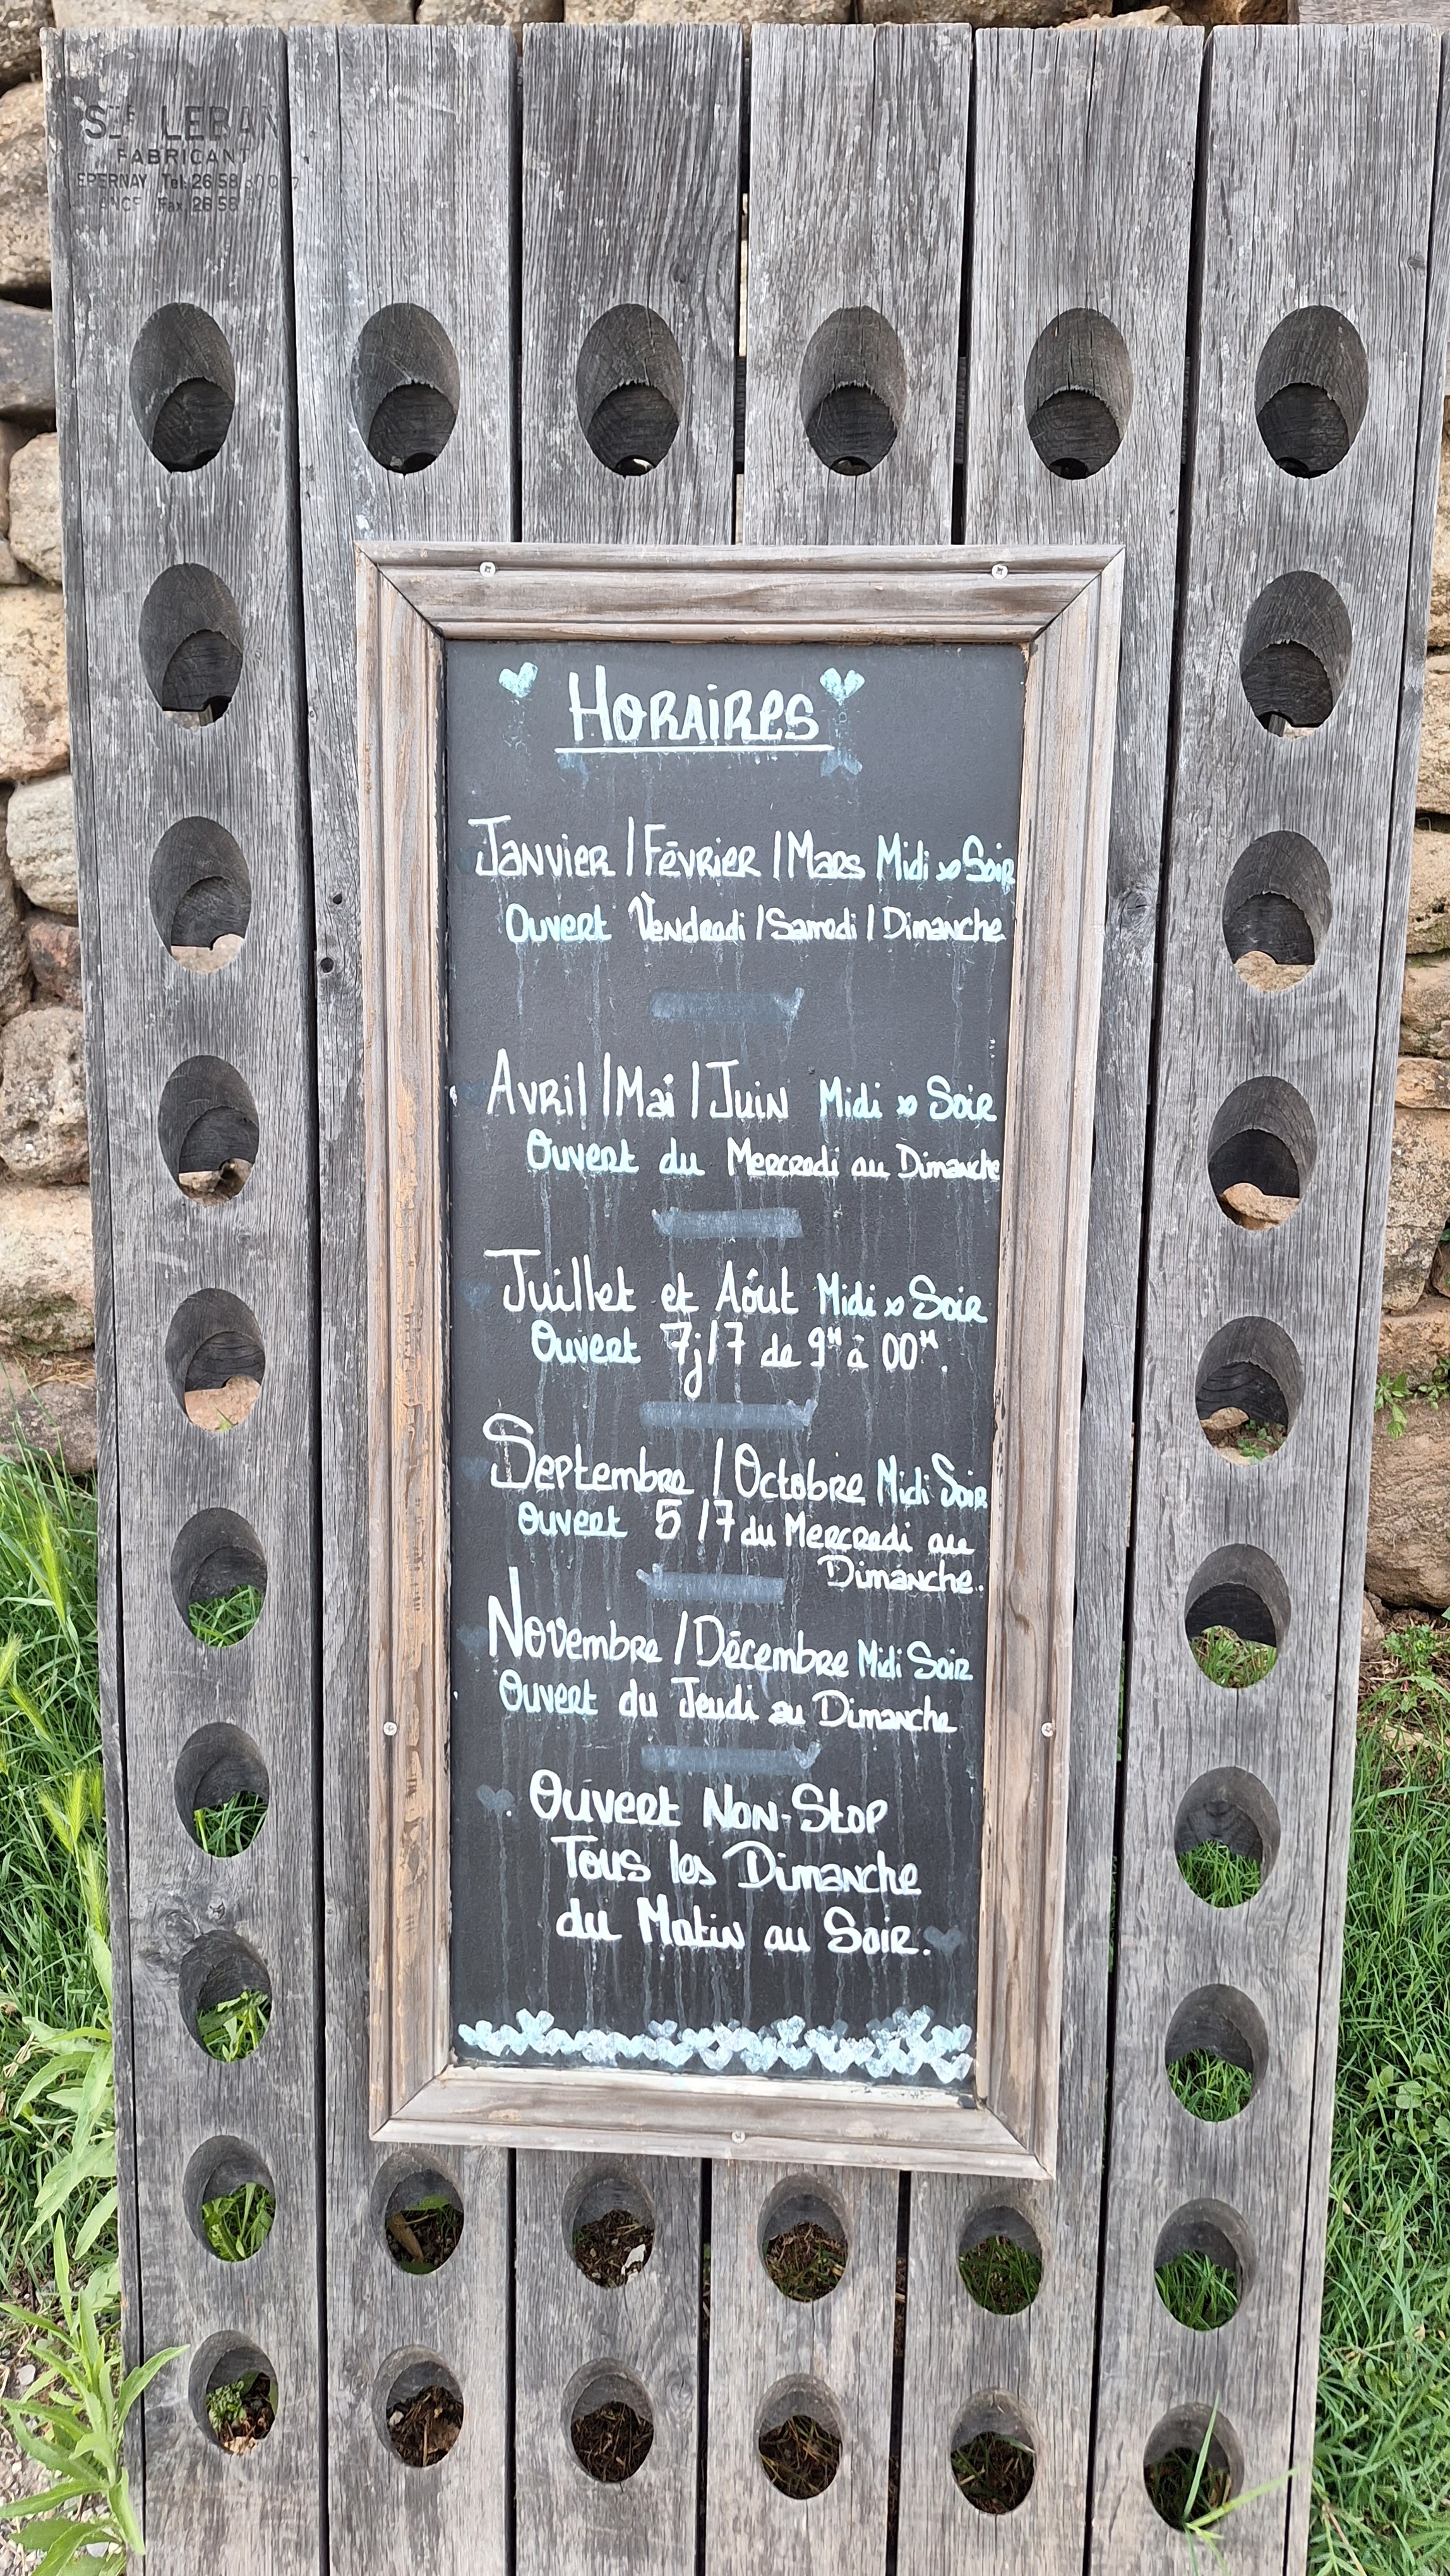 LEBAN
FABRICANT
EPERNAY Tel: 26 58
Fax. 26 58
HORAIRES
Janvier / Février / Mars Midi Soir
Ouvert Vendredi / Samedi / Dimanche
Avril / Mai / Juin Midi Soir
Ouvert du Mercredi au Dimanche
Juillet et Aôut Midi Soir
Ouvert 7j/7 de 9H à 00H.
Septembre / Octobre Midi Soir
Ouvert 5/7 du Mercredi au
Dimanche.
Novembre / Décembre Midi Soir
Ouvert du Jeudi au Dimanche
Ouvert Non-Stop
Tous les Dimanche
du Matin au Soir.